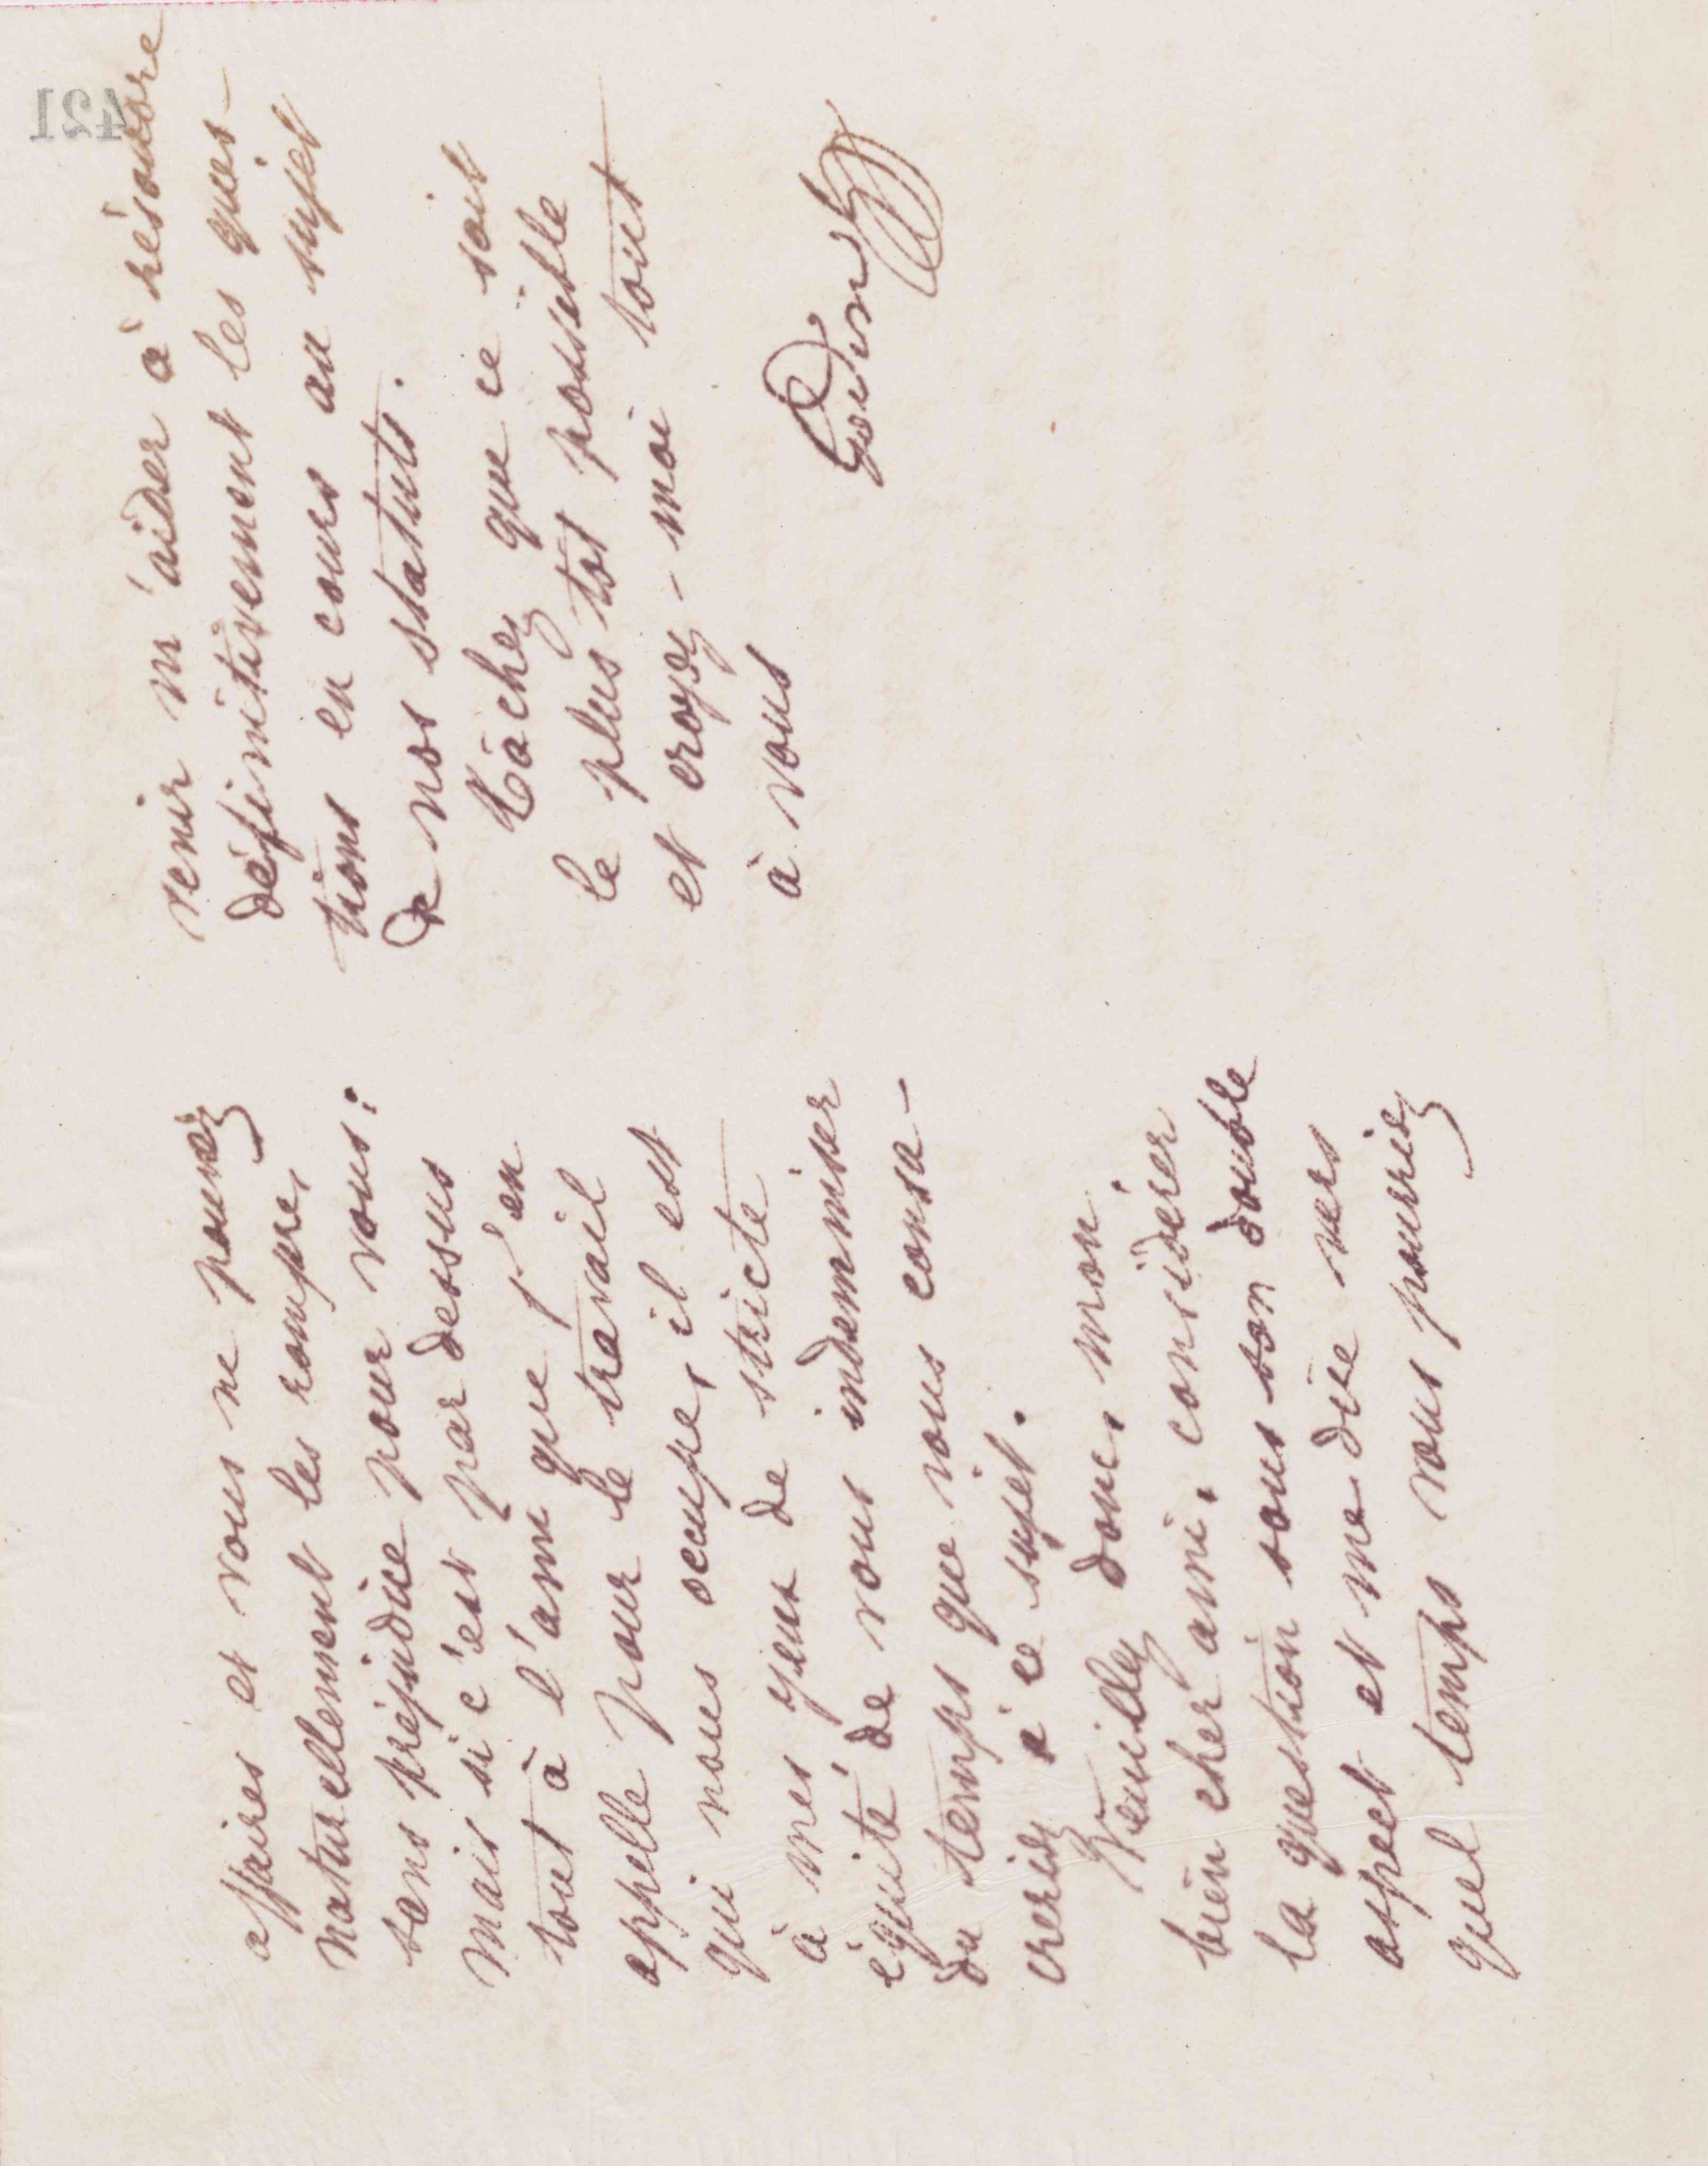 affaires et vous ne pouvez
naturellement les rompre,
sans préjudice pour vous:
mais si c'est par dessus
tout à l'ami que j'en
appelle pour le travail
qui nous occupe, il est
à mes yeux de stricte
équité de vous indemniser
du temps que vous consa-
creriez à ce sujet.
Veuillez donc, mon
bien cher ami, considérer
la question sous son double
aspect et me dire vers
quel temps vous pourriez
venir m'aider à résoudre
définitivement les ques-
tions en cours au sujet
de nos statuts.
Tâchez que ce soit
le plus tôt possible
et croyez-moi tout
à vous
Godin
421